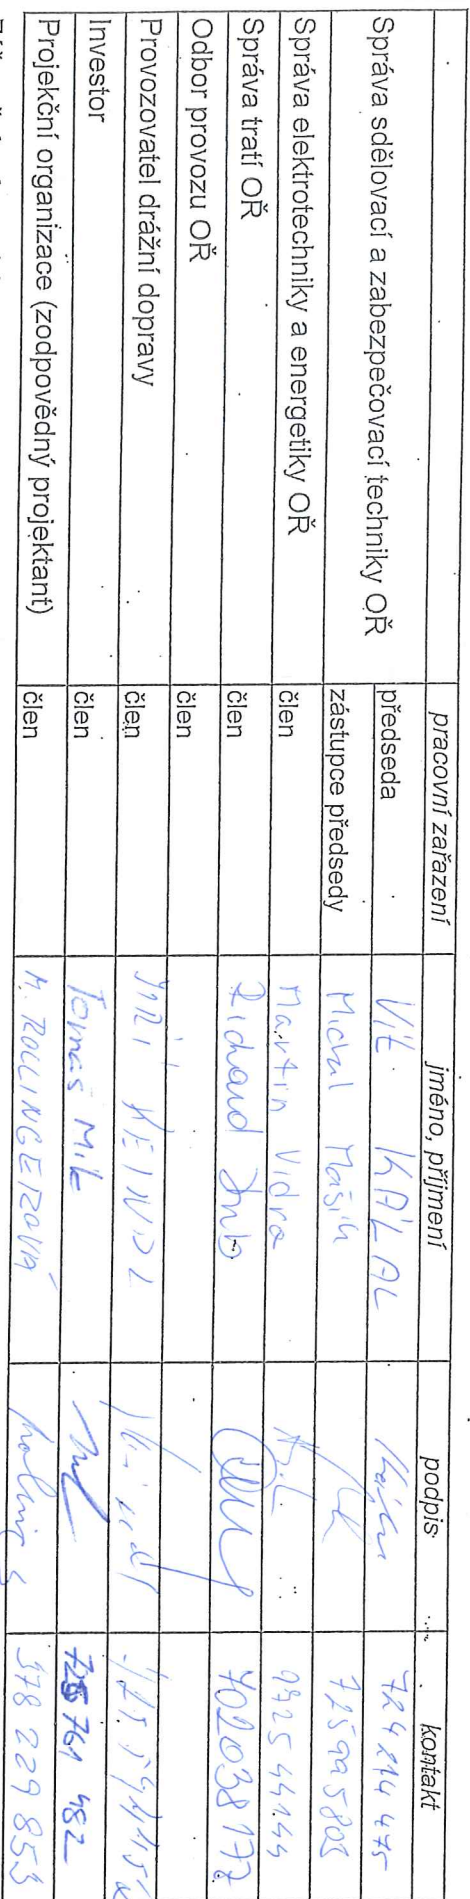 pracovní zařazení jméno, příjmení podpis kontakt
Správa sdělovací a zabezpečovací techniky OŘ předseda Vít KALAL
zástupce předsedy Michal Mašík 725995803
Správa elektrotechniky a energetiky OŘ člen Martin Vidra
Správa tratí OŘ člen Richard 702038177
Odbor provozu OŘ člen
Provozovatel drážní dopravy člen JIŘÍ HEINDL
Investor člen Tomáš 725 761 482
Projekční organizace (zodpovědný projektant) člen M. ROLLINGEROVÁ 378 229 853